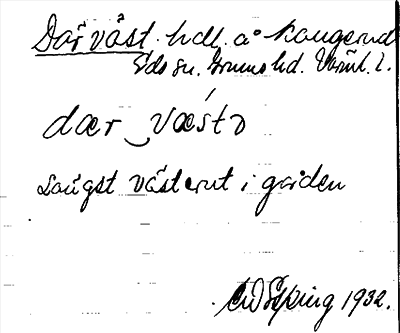 Där väst. hdl. å Kaugerud
Eds sn. Grums hd. Värml. l.
dær væstə
Långst västerut i gården
1932.